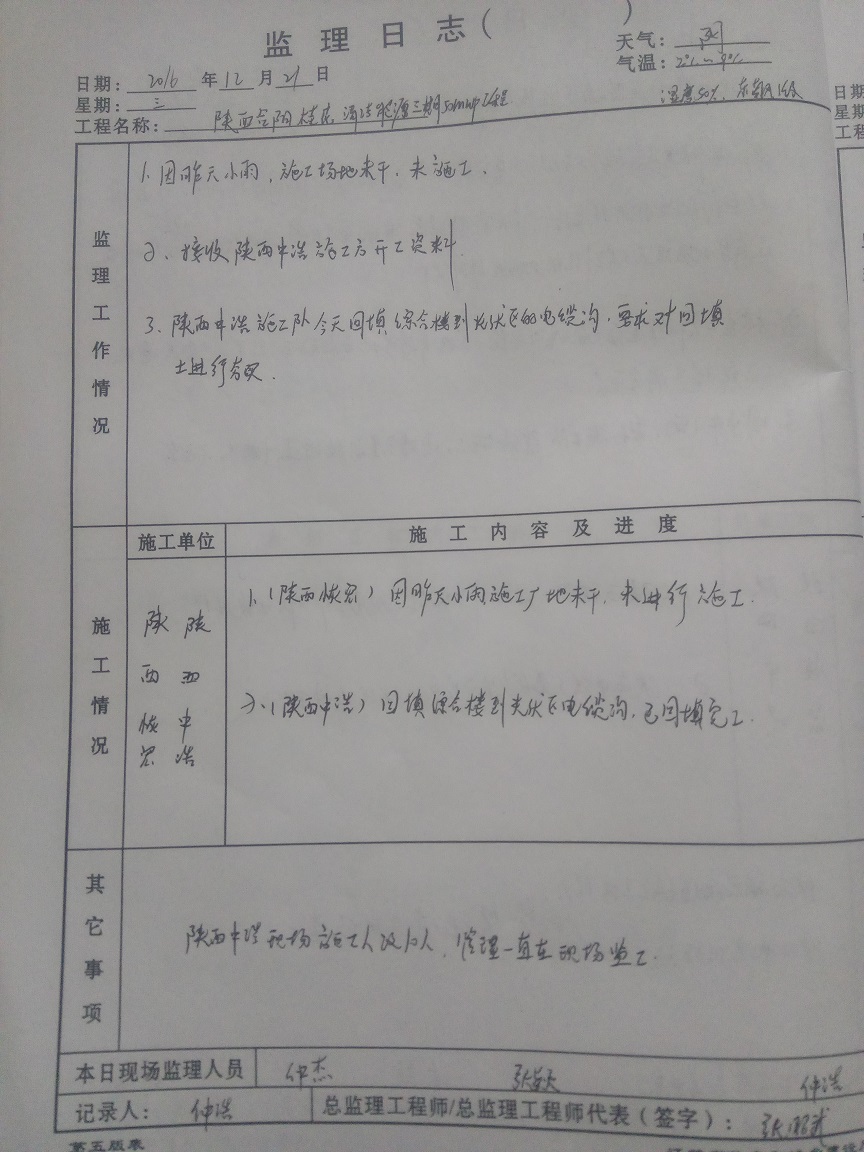 监理日志( )
天气: 阴
日期: 2016 年 12 月 21 日
气温: 2℃~9℃
星期: 三
湿度50%, 东北风1级
工程名称: 陕西合阳 清洁能源三期50MWp工程
监理工作情况
1、因昨天小雨,施工场地未干,未施工.
2、接收陕西中浩施工方开工资料.
3、陕西中浩施工队今天回填综合楼到光伏区的电缆沟,要求对回填
土进行夯实.
施工单位
施工内容及进度
施工情况
陕西恢宏
陕西中浩
1、(陕西恢宏)因昨天小雨施工厂地未干,未进行施工.
2、(陕西中浩)回填综合楼到光伏区电缆沟,已回填完工.
其它事项
陕西中浩现场施工人员10人,监理一直在现场监工.
本日现场监理人员 仲杰 仲浩
记录人: 仲浩 总监理工程师/总监理工程师代表(签字):
第五版表